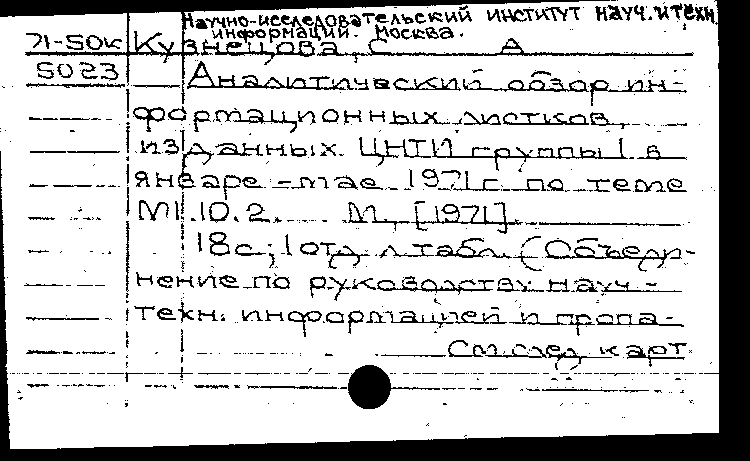 Научно-исследовательский институт науч. и техн
информации. Москва.
71-50к Кузнецова, С А
5023 Аналитический обзор ин-
формационных листков,
изданных ЦНТИ группы 1 в
январе - мае 1971 г по теме
М1.10.2. М., [1971].
18с; 1 отд. л табл. (Объеди-
нение по руководству науч.-
техн. информацией и пропа-
См. след карт